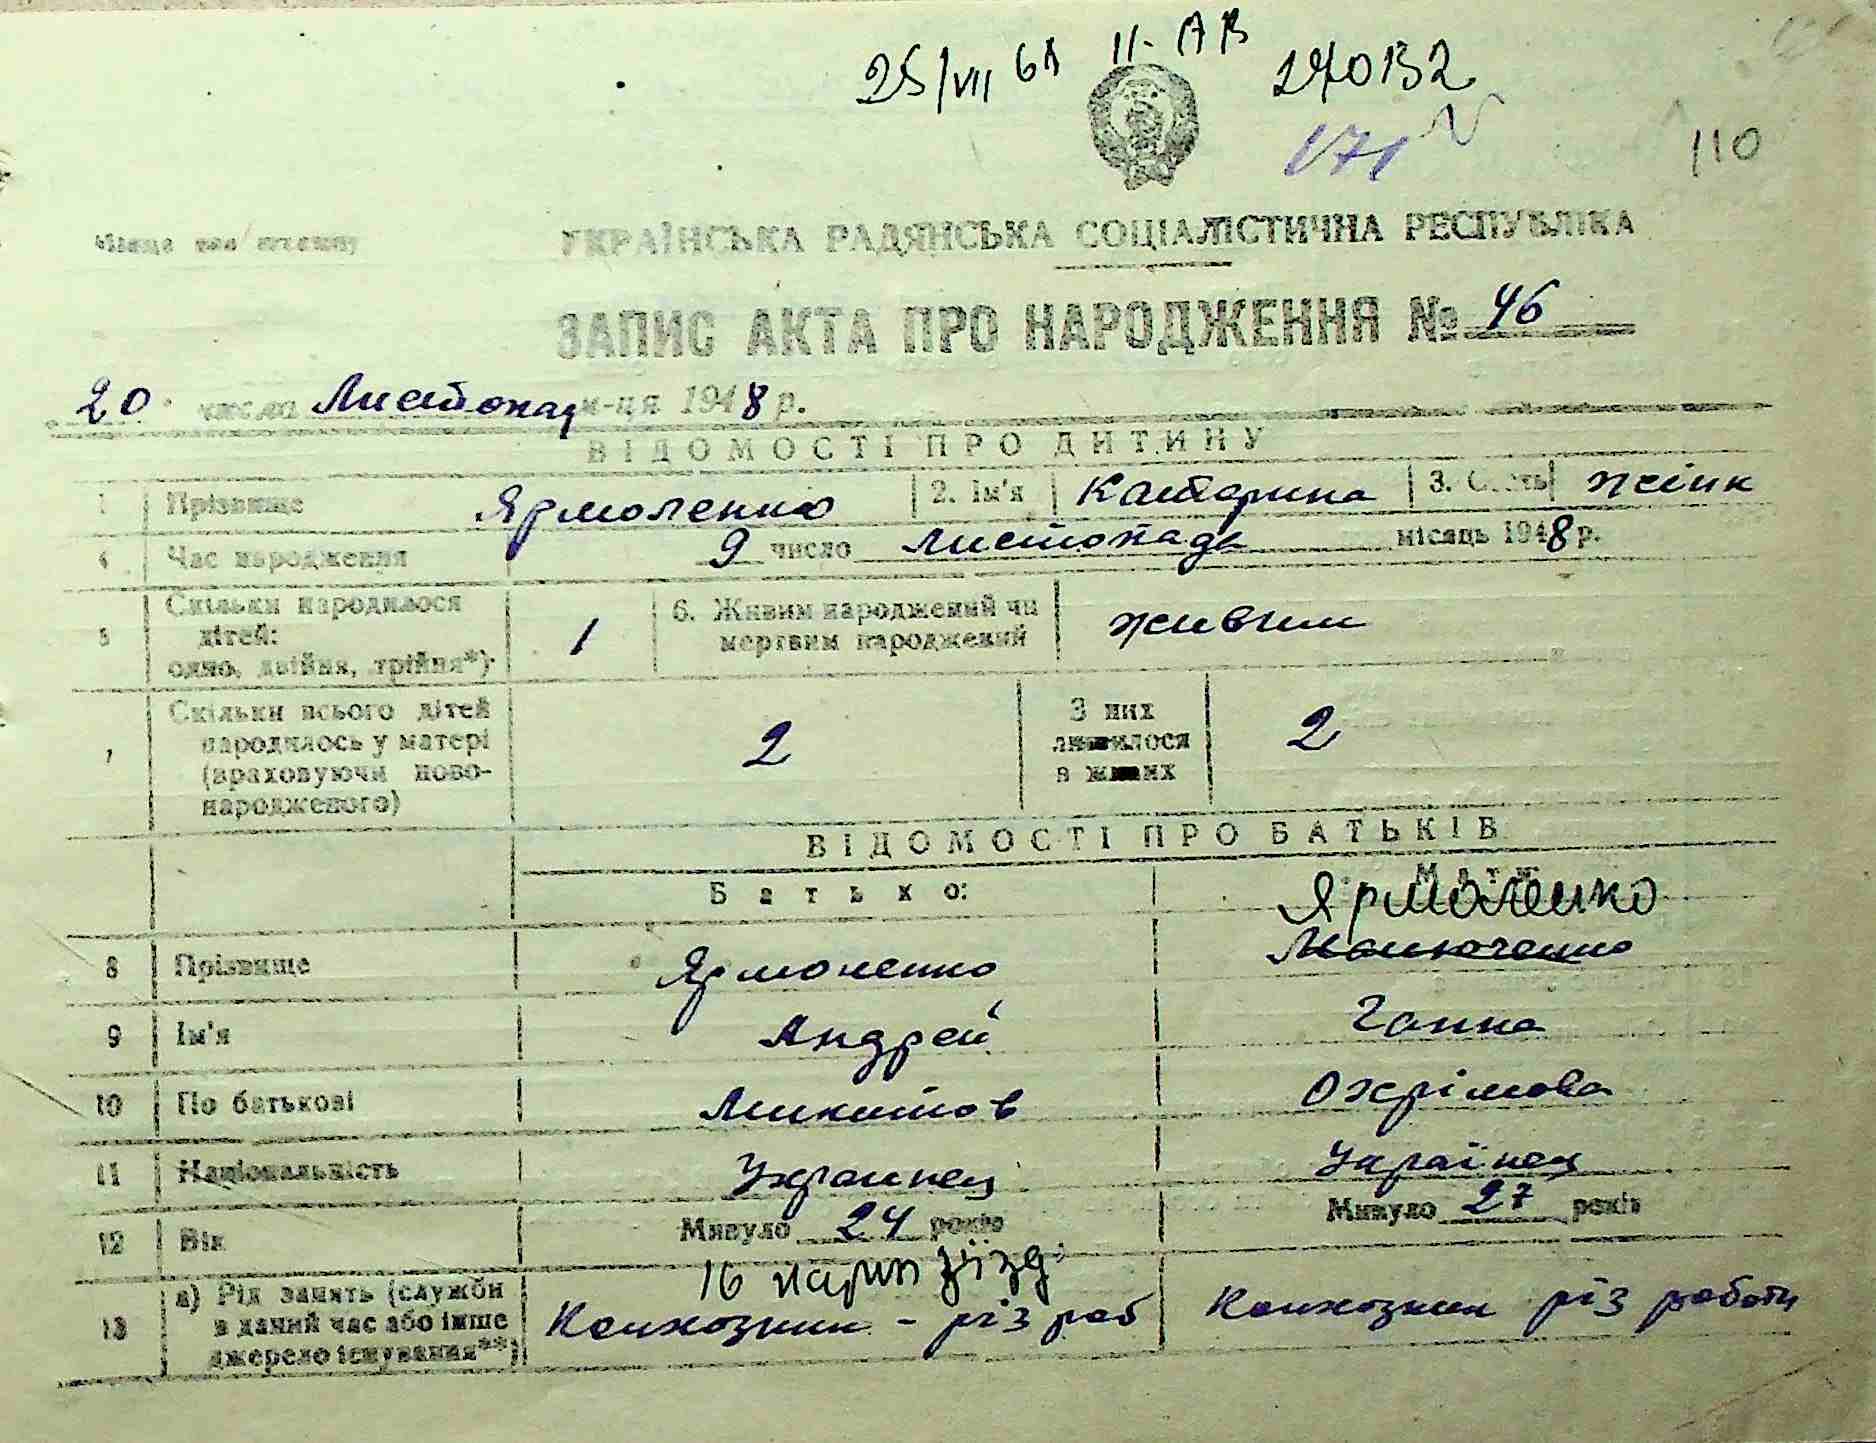 25/VII 61 II-АВ 240132
171
110
УКРАЇНСЬКА РАДЯНСЬКА СОЦІАЛІСТИЧНА РЕСПУБЛІКА
ЗАПИС АКТА ПРО НАРОДЖЕННЯ № 46
20 число Листопад м-ця 1948 р.
ВІДОМОСТІ ПРО ДИТИНУ
1 Прізвище Ярмоленко 2. Ім'я Катерина 3. Стать жінк
4 Час народження 9 число Листопада місяць 1948 р.
5 Скільки народилося дітей: одно, двійня, трійня*) 1 6. Живим народжений чи мертвим народжений живим
7 Скільки всього дітей народилось у матері (враховуючи новонародженого) 2 З них лишилося в живих 2
ВІДОМОСТІ ПРО БАТЬКІВ
Батько: Мати:
Ярмоленко
8 Прізвище Ярмоленко
9 Ім'я Андрей Ганна
10 По батькові Микитов Охрімова
11 Національність Украинец Українец
12 Вік Минуло 24 років Минуло 27 років
16
13 а) Рід занять (служби в даний час або інше джерело існування**) Колхозник - різ раб Колхозник різ работи